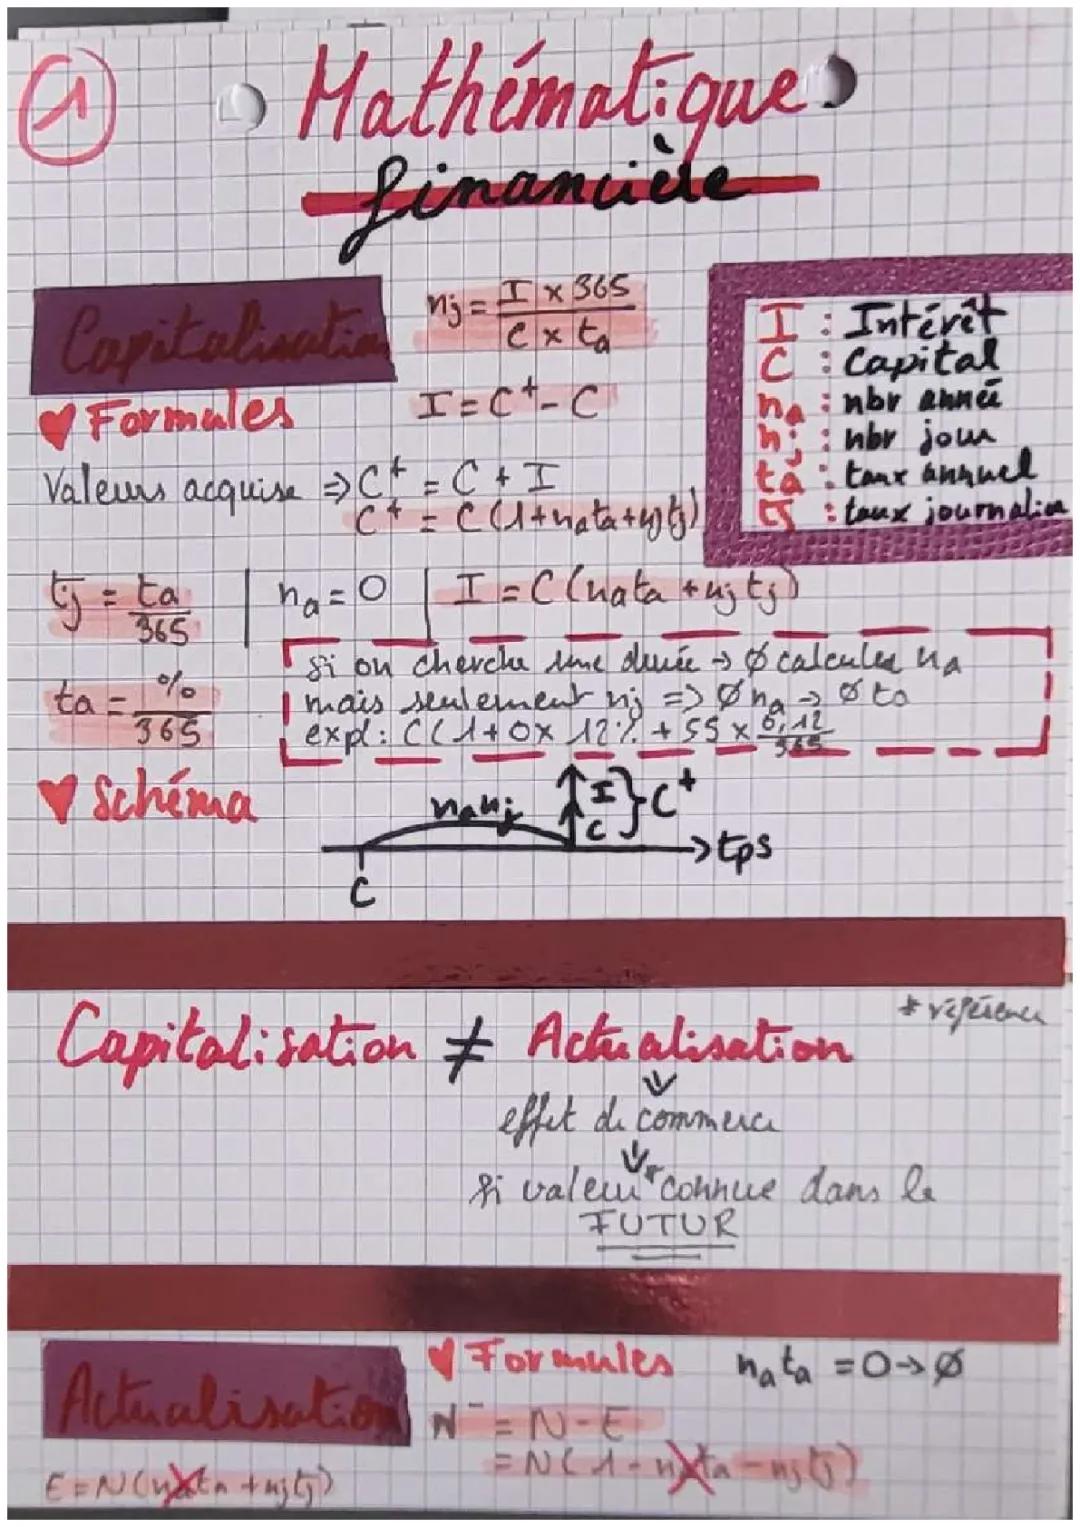 1
Mathématique
financière
Capitalisation
nj = I x 365 / C x ta
I = C⁺ - C
I : Intérêt
C : Capital
na : nbr année
nj : nbr jour
ta : taux annuel
tj : taux journalier
♥ Formules
Valeurs acquise ⇒ C⁺ = C + I
C⁺ = C (1+nata+njtj)
tj = ta / 365 | na = 0 | I = C (nata + njtj)
ta = % / 365
si on cherche une durée → Ø calculer na
mais seulement nj => Ø na → Ø ta
expl : C(1+0x 12% + 55 x 0,12 / 365
♥ Schéma
na nj
I } C⁺
C
→ tps
C
Capitalisation ≠ Actualisation
* référence
effet de commerce
si valeur* connue dans le
FUTUR
Actualisation
♥ Formules
nata = 0 → Ø
N⁻ = N - E
= N ( 1 - nata - njtj)
E = N (nata + njtj)